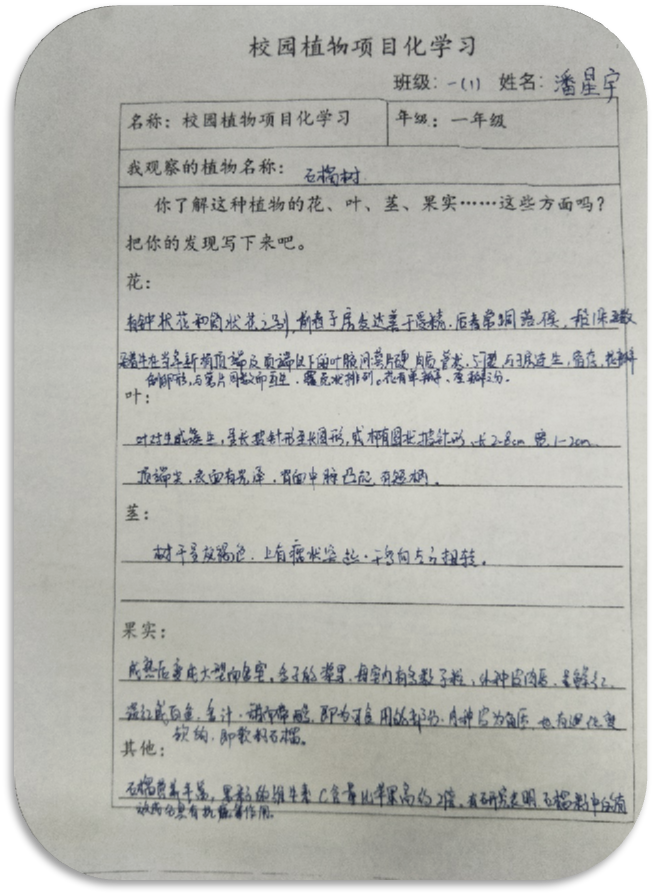 校园植物项目化学习
班级：一(1) 姓名：潘星宇
名称：校园植物项目化学习 年级：一年级
我观察的植物名称：石榴树
你了解这种植物的花、叶、茎、果实……这些方面吗？
把你的发现写下来吧。
花：
有钟状花和筒状花之别，前者子房发达善于受精，后者常凋落
生在当年新梢顶端及顶端以下的叶腋间萼片硬，肉质，管状，与子房连生，宿存，花瓣
倒卵形，与萼片同数而互生，覆瓦状排列。花有单瓣、重瓣之分。
叶：
叶对生或簇生，呈长披针形至长圆形，或椭圆状披针形，长2-8cm 宽1-2cm
顶端尖，表面有光泽，背面中脉凸起，有短柄。
茎：
树干呈灰褐色，上有瘤状突起，干多向左方扭转。
果实：
成熟后变成大型而多室、多子的浆果，每室内有多数子粒，外种皮肉质，呈鲜红、
淡红或白色，多汁，甜而带酸，即为可食用的部分，内种皮为角质，也有退化变
软的，即软籽石榴。
其他：
石榴营养丰富，果实的维生素C含量比苹果高约2倍，有研究表明石榴
作用。